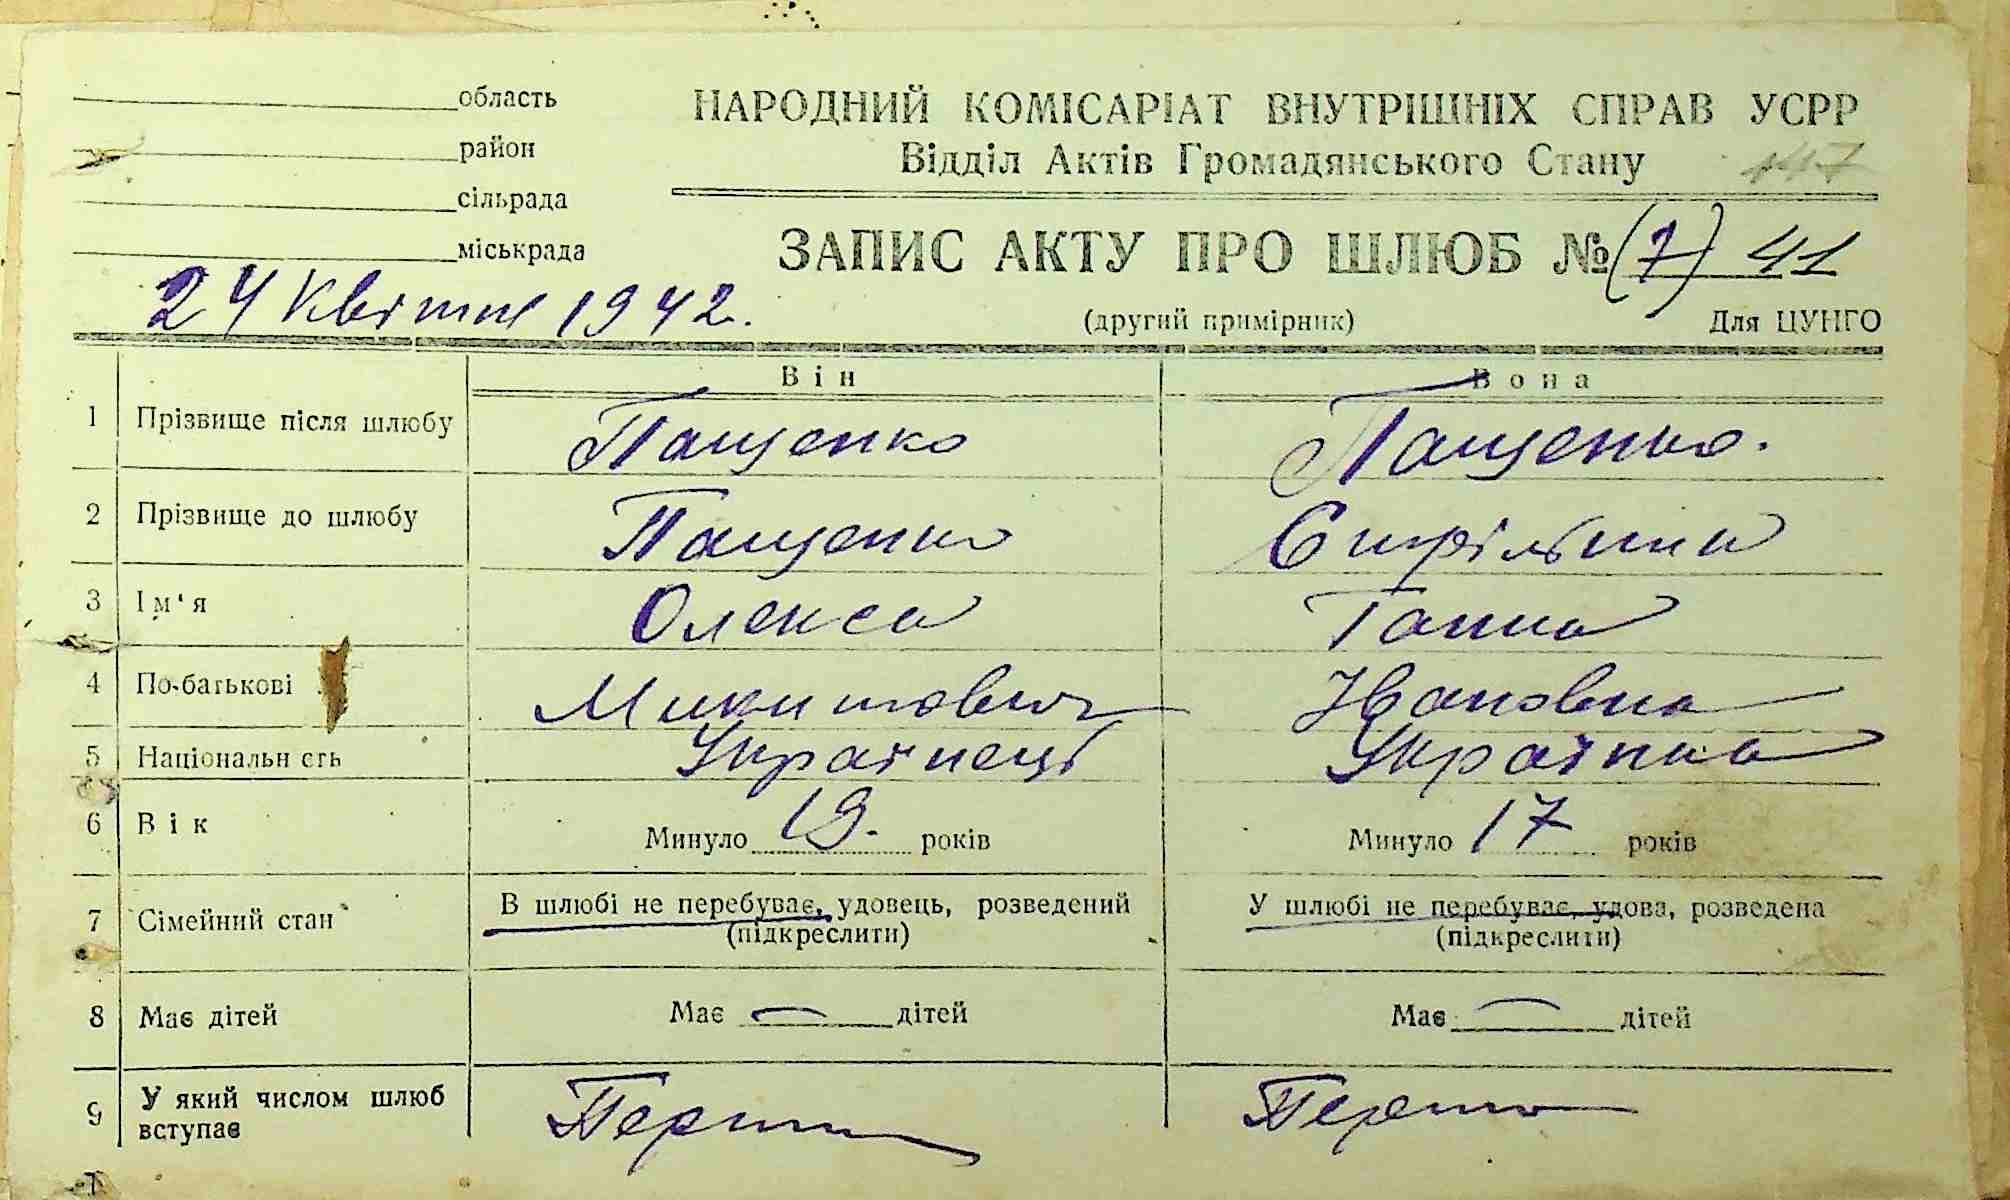 область
район
сільрада
міськрада
НАРОДНИЙ КОМІСАРІАТ ВНУТРІШНІХ СПРАВ УСРР
Відділ Актів Громадянського Стану 147
ЗАПИС АКТУ ПРО ШЛЮБ № (7) 41
24 Квітня 1942.
(другий примірник) Для ЦУНГО
Він Вона
1 Прізвище після шлюбу Пащенко Пащенко.
2 Прізвище до шлюбу Пащенко
3 Ім‘я Олекса Ганна
4 По-батькові Микитович Івановна
5 Національн сть Українець Українка
6 Вік Минуло 19. років Минуло 17 років
7 Сімейний стан В шлюбі не перебуває, удовець, розведений У шлюбі не перебуває, удова, розведена
(підкреслити) (підкреслити)
8 Має дітей Має — дітей Має — дітей
9 У який числом шлюб вступає Перший Перший